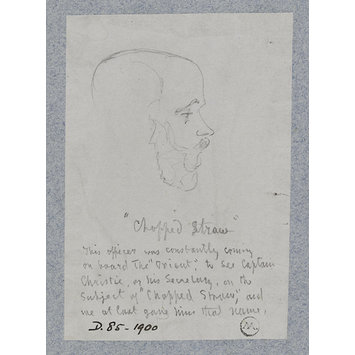 "Chopped Straw"
This officer was constantly coming
on board the "Orient", to see Captain
Christie, or his Secretary, on the
subject of "Chopped Straw," and
we at last gave him that name.
D.85-1900